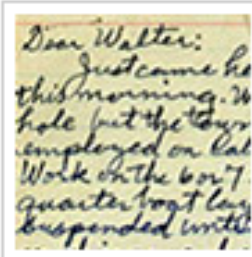 Dear Walter:
Just came he
this morning. W
hole but the town
employed on
Work on the 6 or 7
quarter boat lay
suspended unti